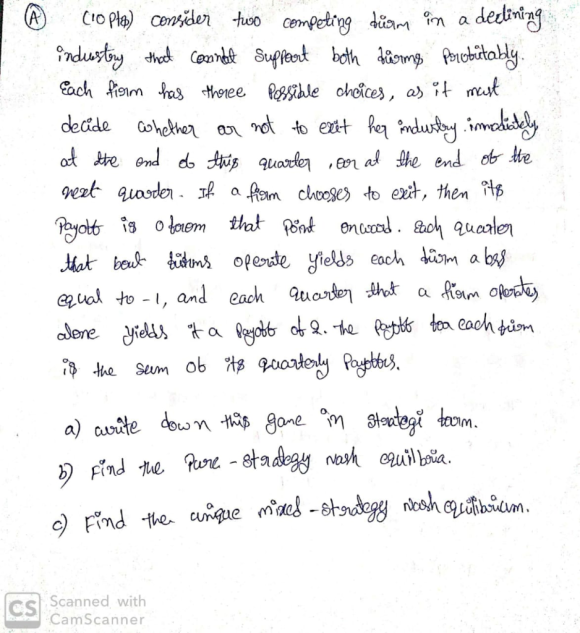 A (10 Pts) consider two competing firm in a declining
industry that cannot Support both firms profitably.
Each firm has three Possible choices, as it must
decide whether or not to exit her industry immediately,
at the end of this quarter, or at the end of the
next quarter. If a firm chooses to exit, then its
Payoff is 0 from that point onward. Each quarter
that both firms operate yields each firm a loss
equal to -1, and each quarter that a firm operates
alone yields it a payoff of 2. the payoff for each firm
is the sum of its quarterly Payoffs.
a) write down this game in strategic form.
b) Find the Pure-strategy nash equilibria.
c) Find the unique mixed-strategy Nash equilibrium.
CS Scanned with
CamScanner